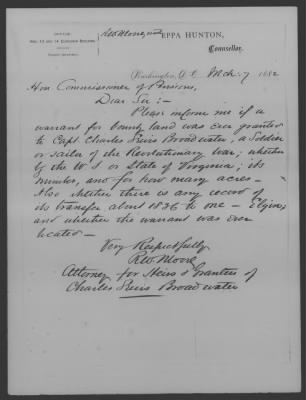 OFFICE,
Nos. 13 and 14
R W Moore, with EPPA HUNTON,
Counsellor,
Washington, D.C. Mch. 7 1882
Hon. Commissioner of Pensions,
Dear Sir:-
Please inform me if a
warrant for bounty land was ever granted
to Capt. Charles Lewis Broadwater, a Soldier
or sailor of the Revolutionary War, whether
by the U.S or State of Virginia; its
number, and for how many acres-
Also whether there is any record of
its transfer about 1826 to one - Elgin,
and whether the warrant was ever
located -
Very Respectfully
R W Moore
Attorney for Heirs & Grantees of
Charles Lewis Broadwater